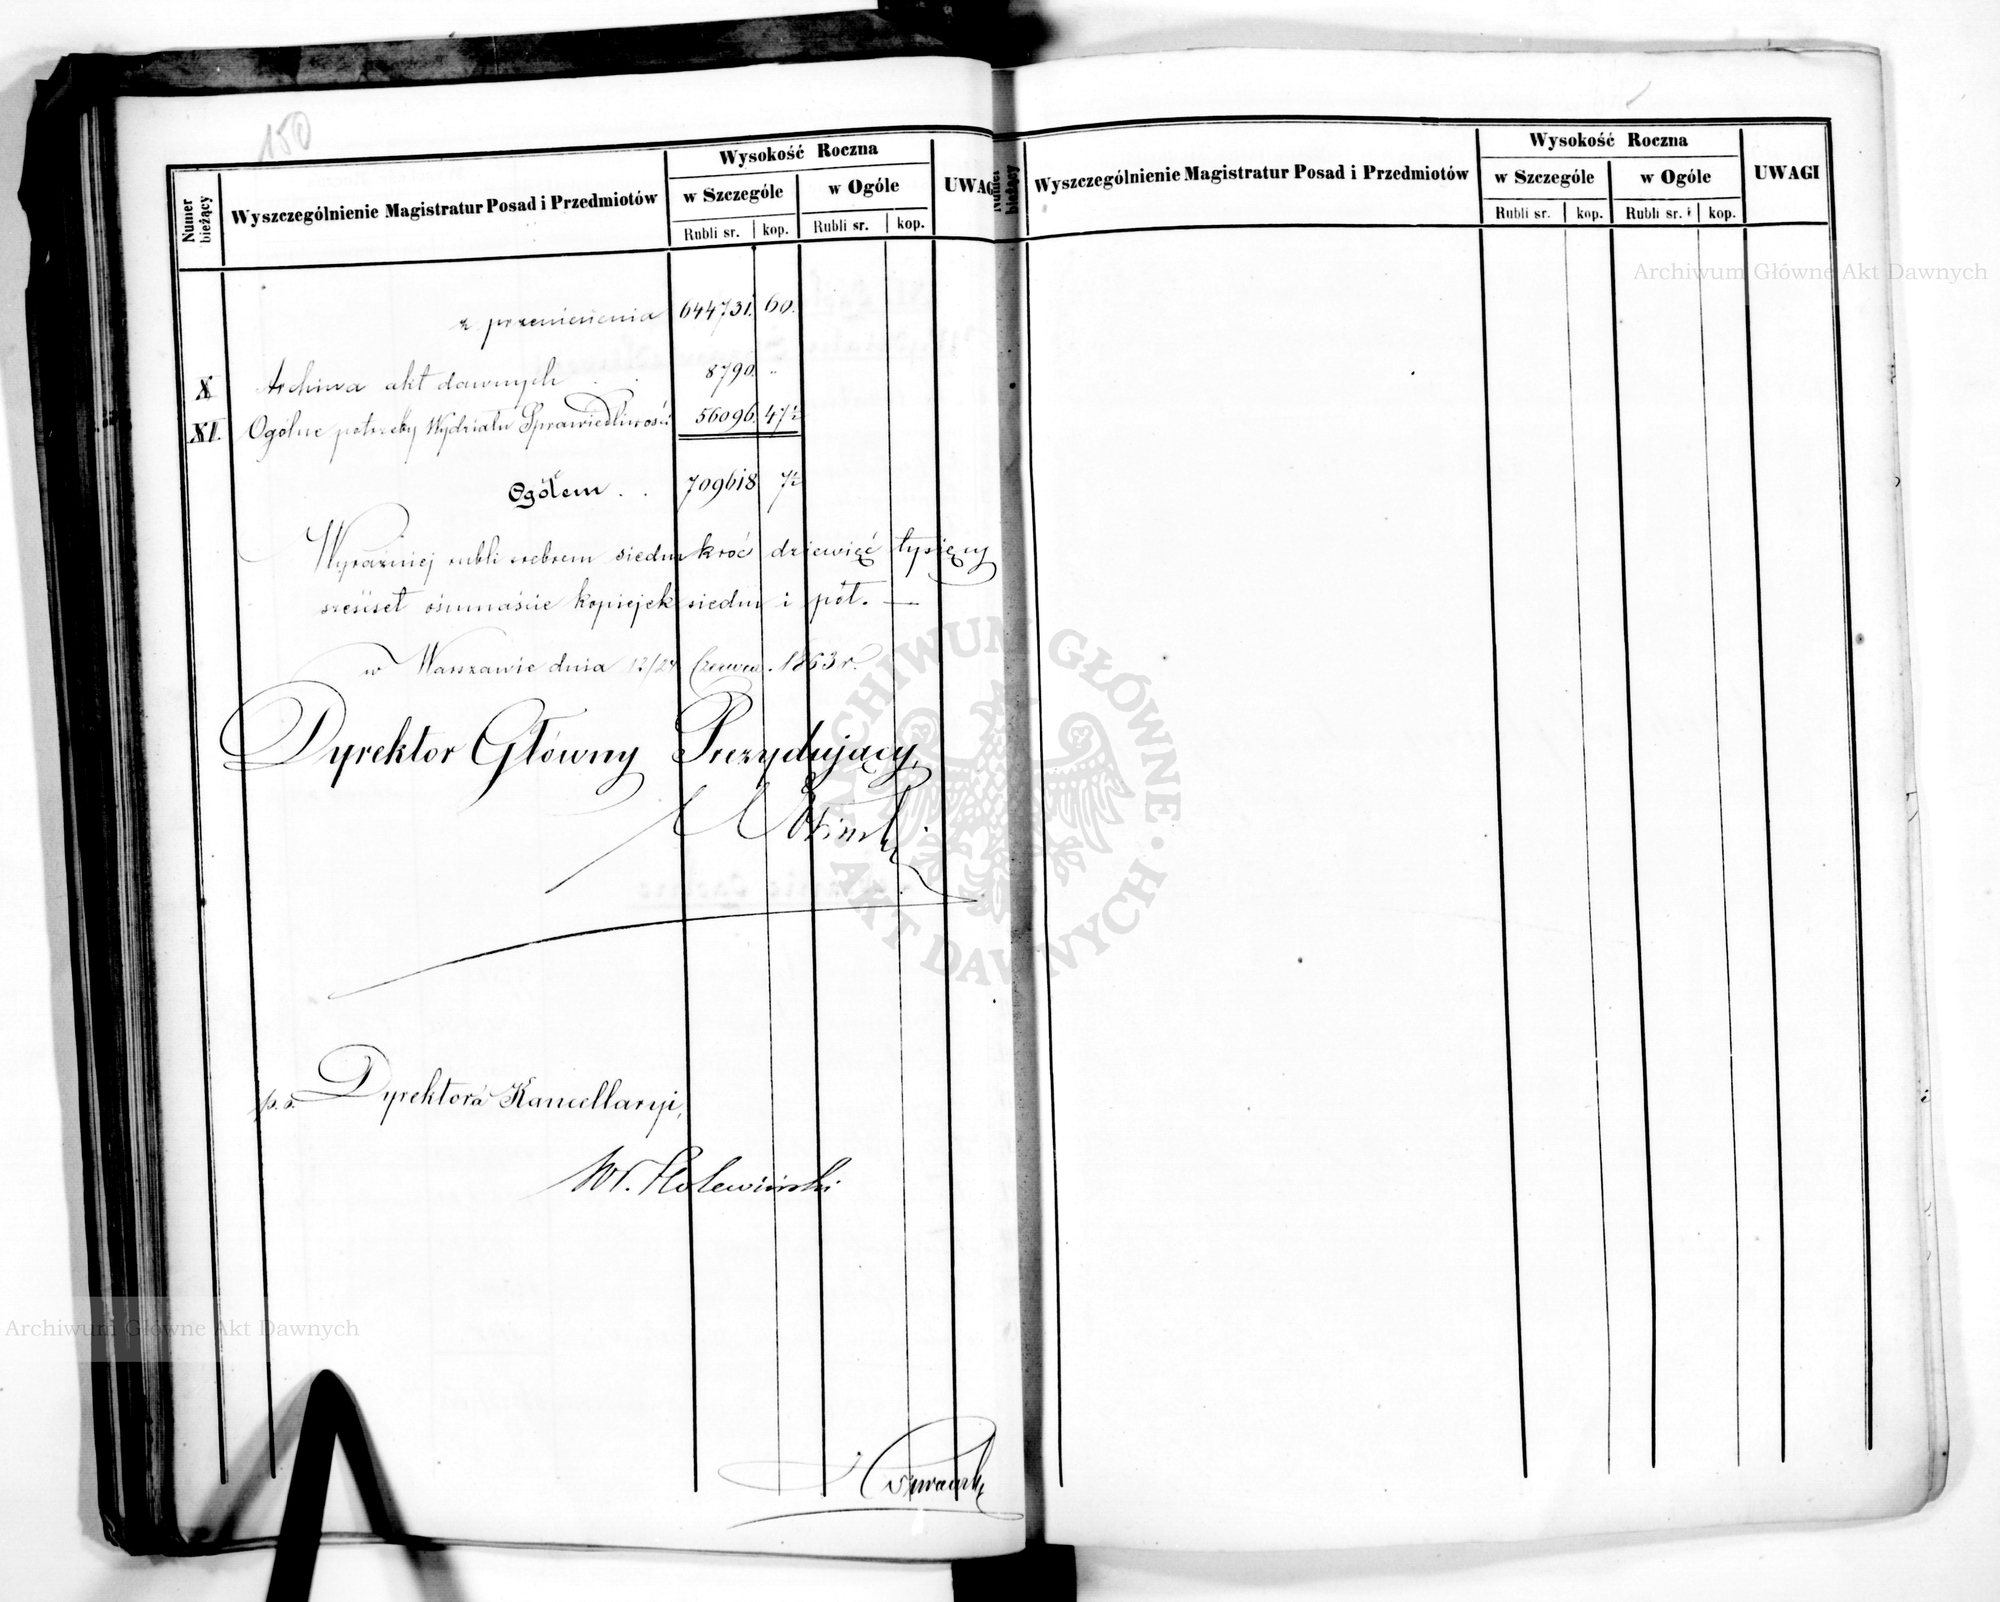 150
Numer bieżący
Wyszczególnienie Magistratur Posad i Przedmiotów
Wysokość Roczna
w Szczególe
w Ogóle
Rubli sr.
kop.
Rubli sr.
kop.
UWAGI
z przeniesienia 644731. 60.
X Archiwa akt dawnych . . 8790. "
XI. Ogólne potrzeby Wydziału Sprawiedliwości 56096. 47½
Ogółem . . 709618 7½
Wyraźniej rubli srebrem siedmkroć dziewięć tysięcy
sześset ośmnaście kopiejek siedm i pół. —
w Warszawie dnia 12/24 Czerwca 1863 r.
Dyrektor Główny Prezydujący,
p.o. Dyrektora Kancellaryi,
Wł. Holewiński
Numer bieżący
Wyszczególnienie Magistratur Posad i Przedmiotów
Wysokość Roczna
w Szczególe
w Ogóle
Rubli sr.
kop.
Rubli sr.
kop.
UWAGI
Archiwum Główne Akt Dawnych
ARCHIWUM GŁÓWNE AKT DAWNYCH
Archiwum Główne Akt Dawnych